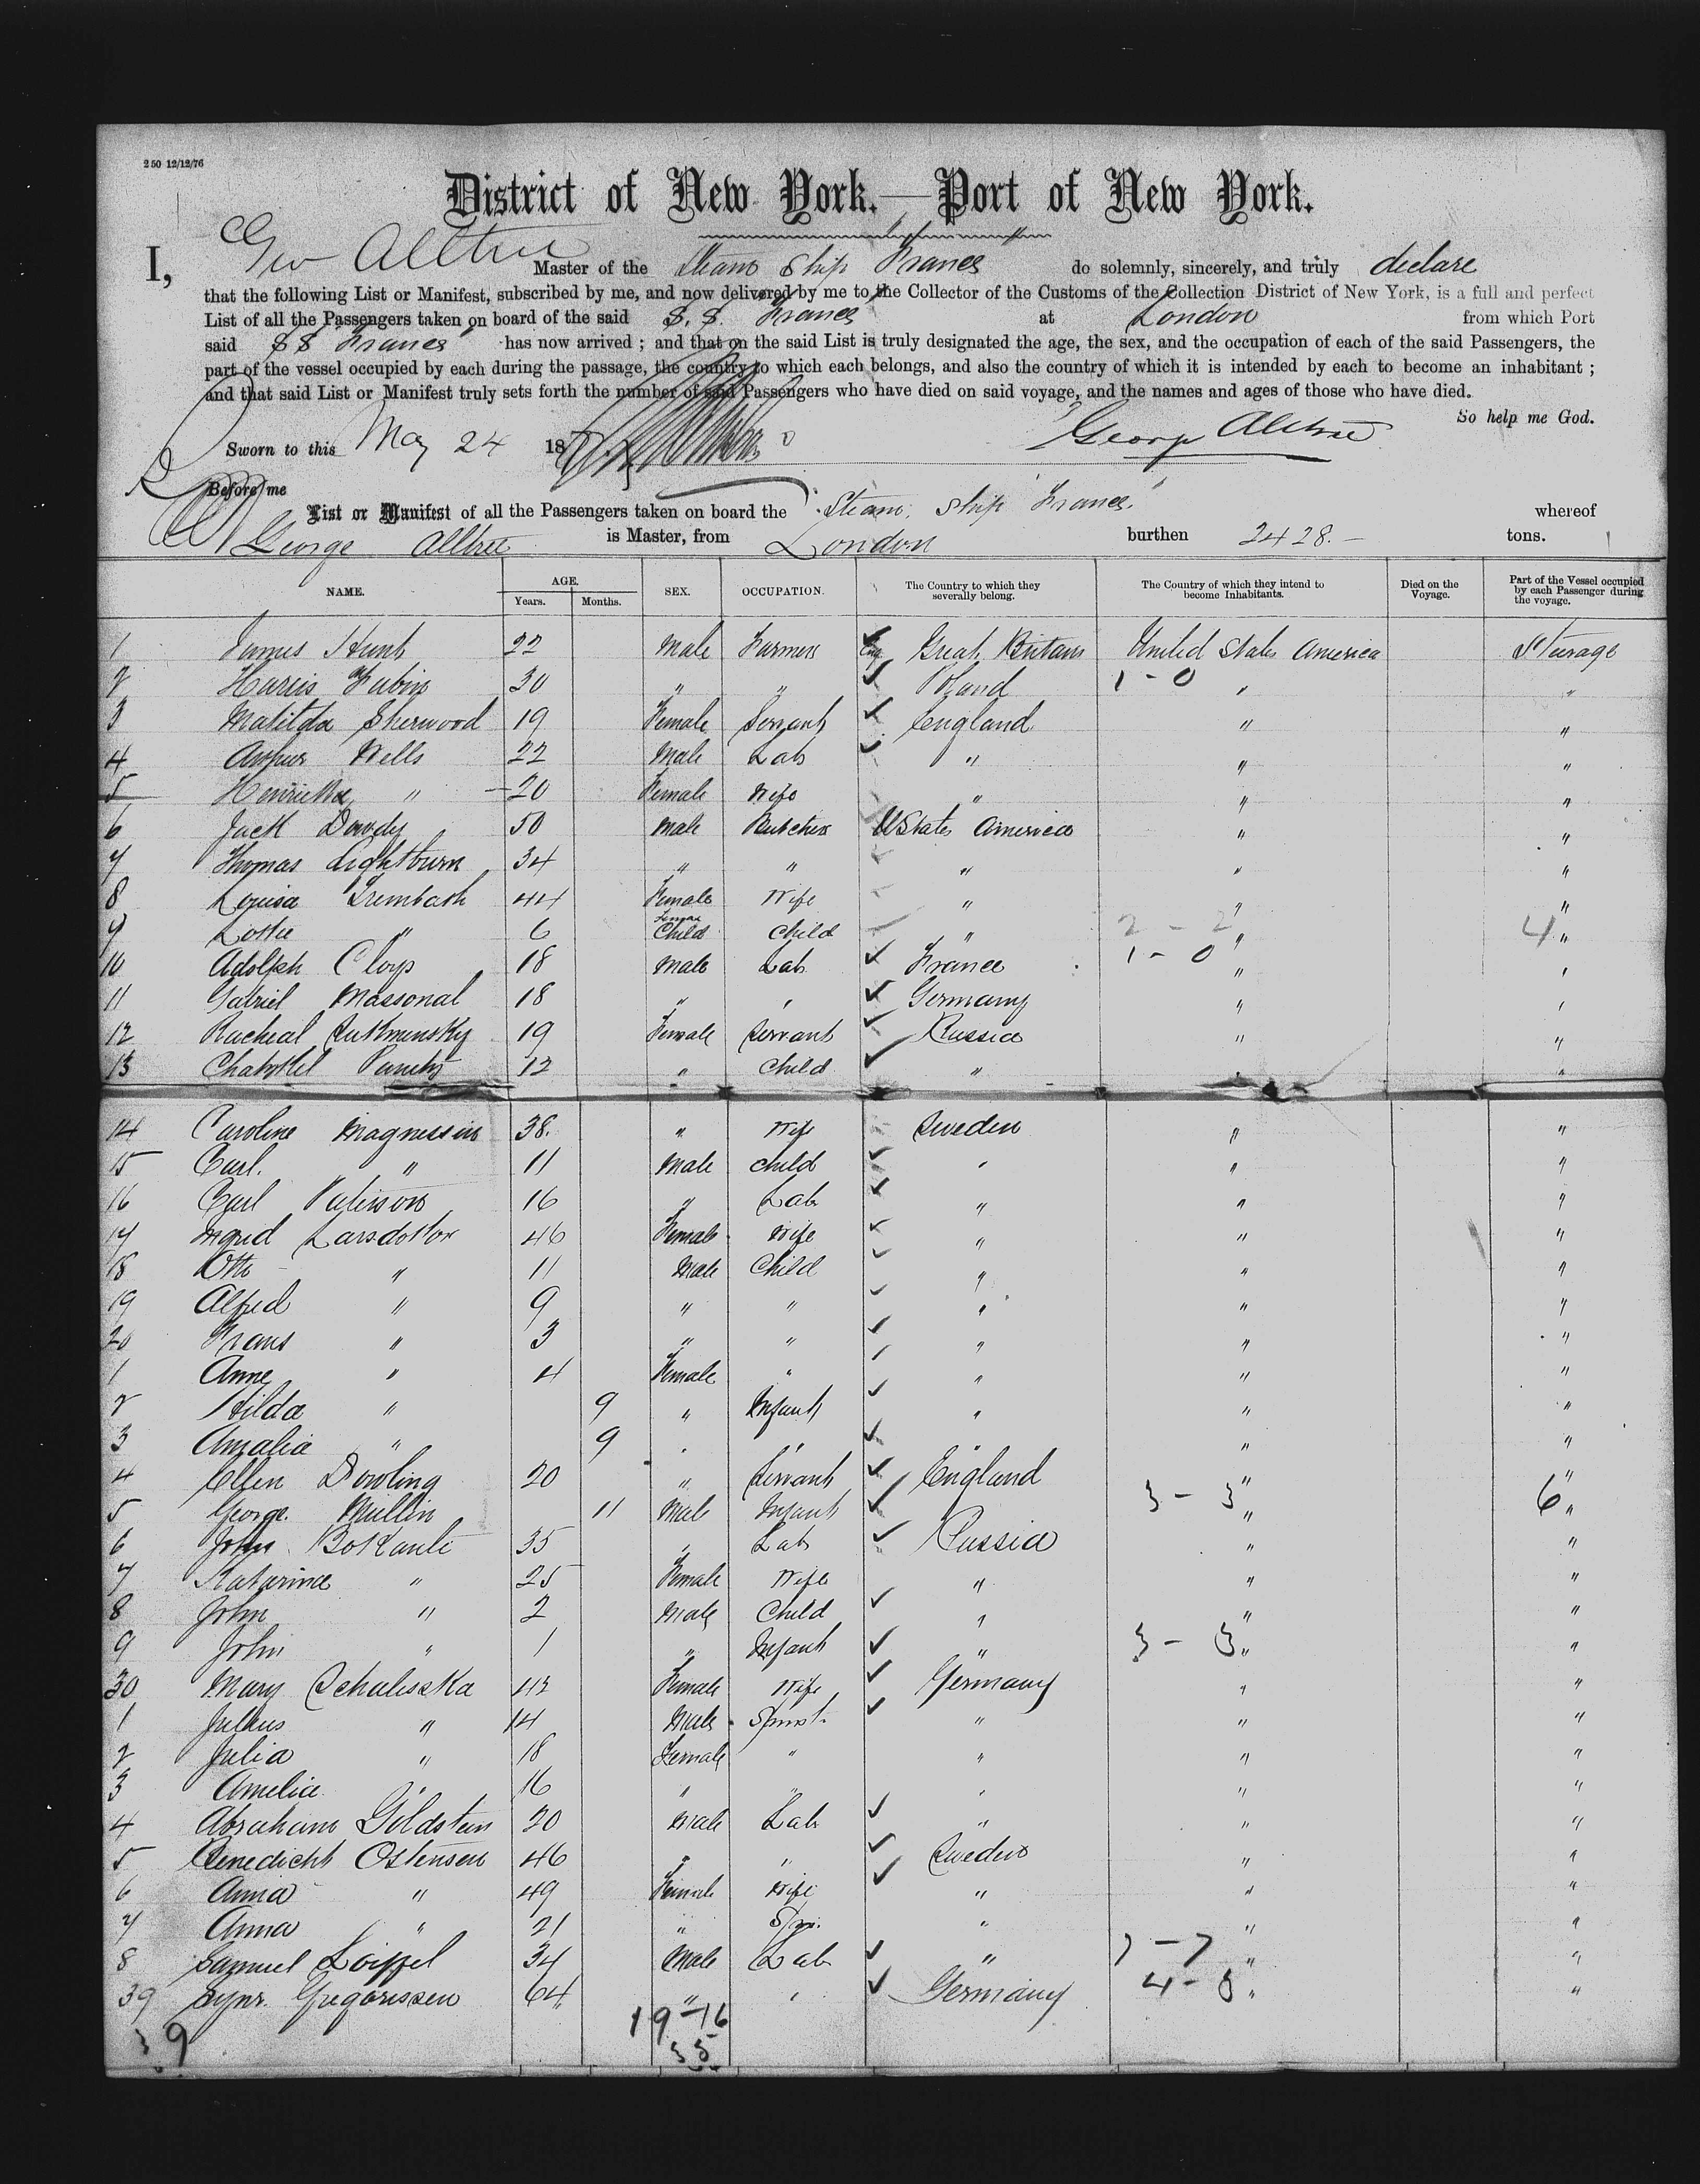 250 12/12/76
District of New York.—Port of New York.
I, Geo Alltree Master of the Steam Ship France do solemnly, sincerely, and truly declare
that the following List or Manifest, subscribed by me, and now delivered by me to the Collector of the Customs of the Collection District of New York, is a full and perfect
List of all the Passengers taken on board of the said S.S. France at London from which Port
said SS France has now arrived ; and that on the said List is truly designated the age, the sex, and the occupation of each of the said Passengers, the
part of the vessel occupied by each during the passage, the country to which each belongs, and also the country of which it is intended by each to become an inhabitant ;
and that said List or Manifest truly sets forth the number of said Passengers who have died on said voyage, and the names and ages of those who have died.
So help me God.
Sworn to this May 24 187 George Alltree
Before me
List or Manifest of all the Passengers taken on board the Steam Ship France whereof
George Alltree is Master, from London burthen 2428.- tons.
NAME. AGE. Years. Months. SEX. OCCUPATION. The Country to which they severally belong. The Country of which they intend to become Inhabitants. Died on the Voyage. Part of the Vessel occupied by each Passenger during the voyage.
1 James Hunt 22 Male Farmer Eng Great Britain United States America Steerage
2 Harris Rubin 30 " " Poland 1-0 " "
3 Matilda Sherwood 19 Female Servant England " "
4 Arthur Wells 22 Male Lab " " "
5 Henrietta " 20 Female Wife " " "
6 Jack Dowdy 50 Male Butcher U States America " "
7 Thomas Lightburn 34 " " " " "
8 Louisa Trembath 44 Female Wife " " "
9 Lottie " 6 Female Child Child " 2-2 " 4 "
10 Adolph 18 Male Lab France 1-0 " "
11 Gabriel Massonal 18 " " Germany " "
12 Racheal 19 Female Servant Russia " "
13 12 " Child " " "
14 Caroline Magnessin 38. " Wife Sweden " "
15 Carl. " 11 Male Child " " "
16 Carl Peterson 16 " Lab " " "
17 Ingrid Larsdotter 46 Female Wife " " "
18 Otto " 11 Male Child " " "
19 Alfred " 9 " " " " "
20 Frans " 3 " " " " "
1 Anne " 4 Female " " " "
2 Hilda " 9 " Infant " " "
3 Amalia " 9 " " " " "
4 Ellen Dowling 20 " Servant England " "
5 George Mullin 11 Male Infant 3-3 " 6 "
6 John Bokante 35 " Lab Russia " "
7 Katarina " 25 Female Wife " " "
8 John " 2 Male Child " " "
9 John " 1 " Infant " 3-3 " "
30 Mary Schalisska 42 Female Wife Germany " "
1 Julius " 14 Male Spinst. " " "
2 Julia " 18 Female " " " "
3 Amelia " 16 " " " " "
4 Abraham Goldstein 20 Male Lab " " "
5 Benedicht Ostensen 46 " " Sweden " "
6 Anna " 49 Female Wife " " "
7 Anna " 21 " Spin. " " "
8 Samuel 34 Male Lab " 7-7 " "
39 Gregorissen 64 " " Germany 4-0 " "
39 19-16
35